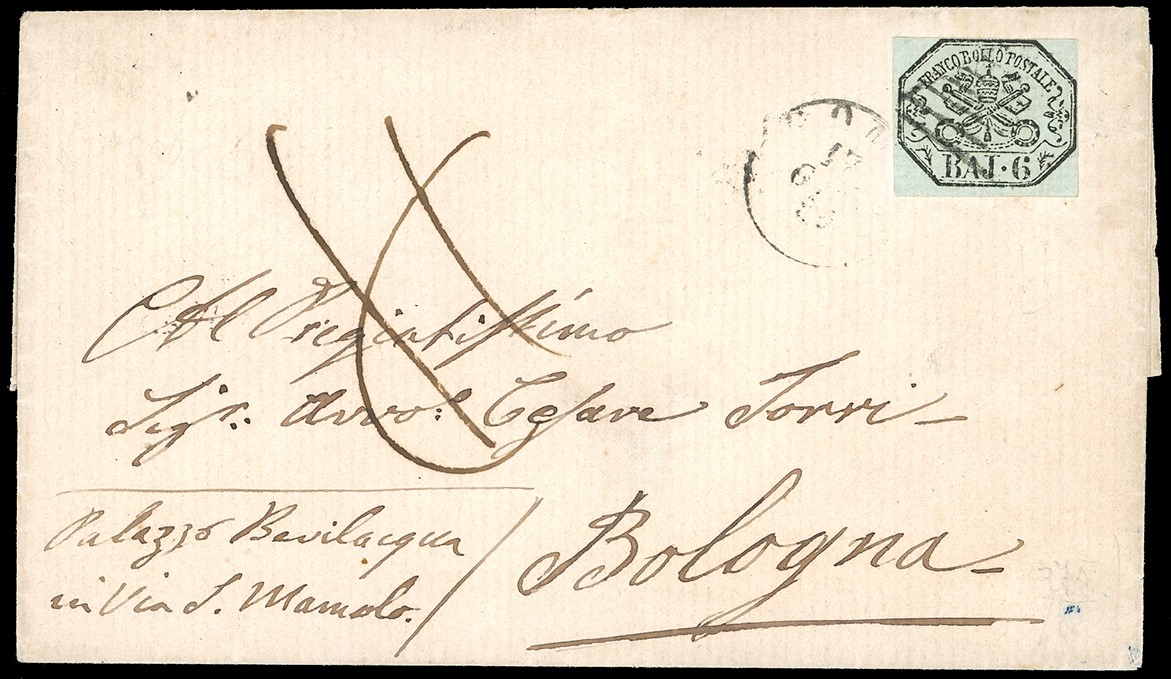 FRANCO BOLLO POSTALE
BAJ · 6
Al Pregiatissimo
Sigr. Avvo: Cesare Torri
Bologna
Palazzo Bevilacqua
in Via S. Mamolo.